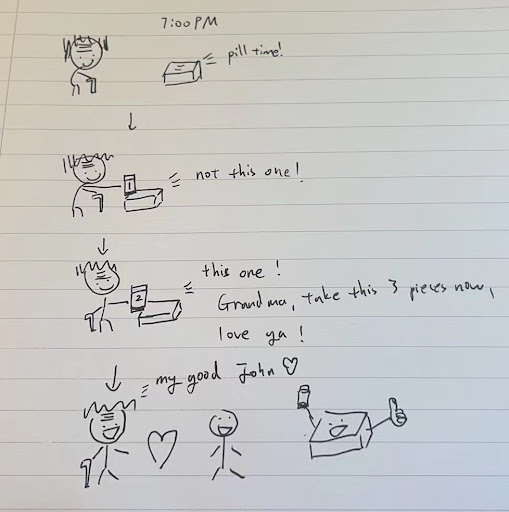 7:00 PM
pill time!
1
not this one!
2
this one!
Grandma, take this 3 pieces now,
love ya!
my good John ♡